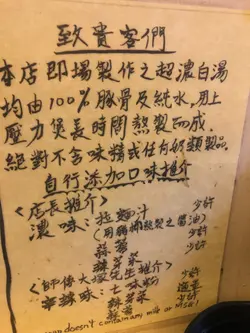 致貴客們
本店即場製作之超濃白湯
均由100%豚骨及純水,用上
壓力煲長時間熬製而成,
絕對不含味精或任何奶類製品.
自行添加口味推介
<店長推介>
濃味:拉麵汁 少許
蒜蓉 少許
辣菜 少許
推介> 少許
七味粉 適量
辣菜 少許
doesn't contain any milk or MSG!